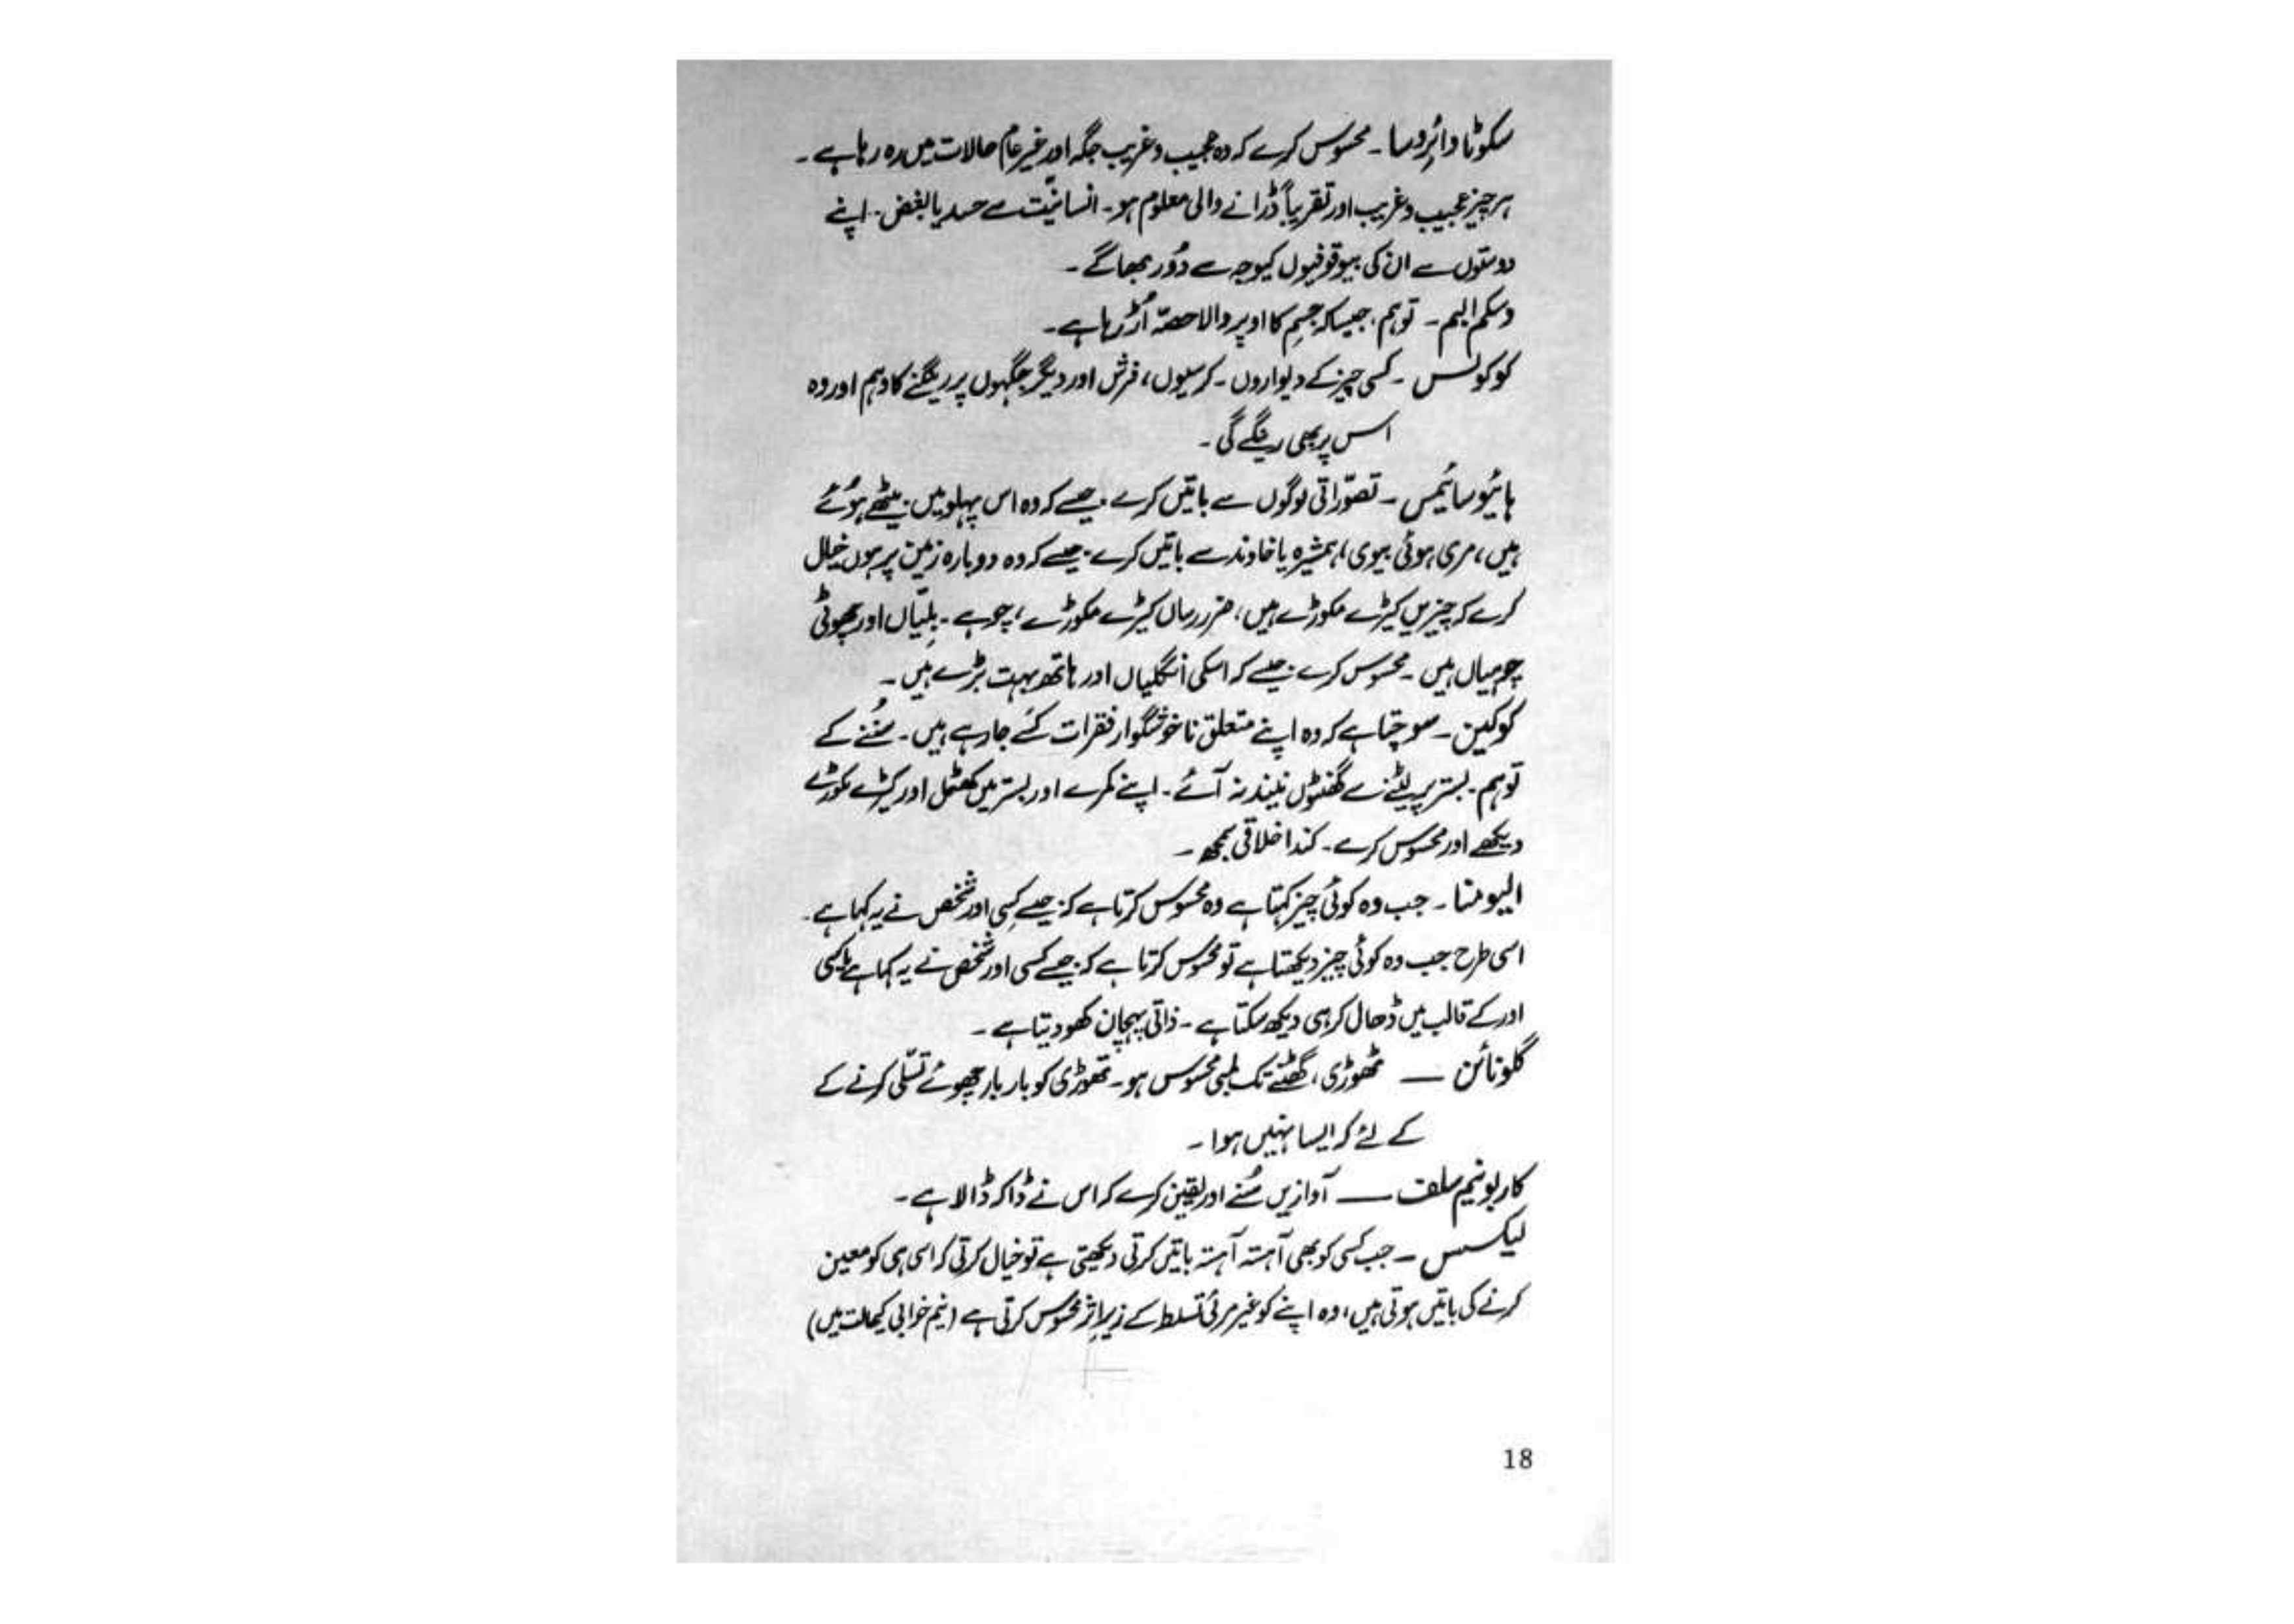 سکوٹا وائروسا ۔ محسوس کرے کہ وہ عجیب وغریب جگہ اور غیر عام حالات میں رہ رہا ہے ۔
ہر چیز عجیب وغریب اور تقریباً ڈرانے والی معلوم ہو ۔ انسانیّت سے حسد یا بغض ۔ اپنے
دوستوں سے ان کی بیوقوفیوں کیوجہ سے دُور بھاگے ۔
وسکم البم ۔ توہم ، جیسا کہ جسم کا اوپر والا حصّہ اُڑ رہا ہے ۔
کوکولس ۔ کسی چیز کے دیواروں ۔ کرسیوں ، فرش اور دیگر جگہوں پر رینگنے کا وہم اور وہ
اس پر بھی رینگے گی ۔
ہائیوسائیمس ۔ تصوّراتی لوگوں سے باتیں کرے ۔ جیسے کہ وہ اس پہلو میں بیٹھے ہوئے
ہیں ، مری ہوئی بیوی ، ہمشیرہ یا خاوند سے باتیں کرے ۔ جیسے کہ وہ دوبارہ زمین پر ہوں خیال
کرے کہ چیزیں کیڑے مکوڑے ہیں ، ضرر رساں کیڑے مکوڑے ، چوہے ۔ بلیّاں اور چھوٹی
چوہیاں ہیں ۔ محسوس کرے جیسے کہ اسکی اُنگلیاں اور ہاتھ بہت بڑے ہیں ۔
کوکین ۔ سوچتا ہے کہ وہ اپنے متعلق ناخوشگوار فقرات کسے جا رہے ہیں ۔ سُننے کے
توہم ۔ بستر پر لیٹنے سے گھنٹوں نیند نہ آئے ۔ اپنے کمرے اور بستر میں کھٹمل اور کیڑے مکوڑے
دیکھے اور محسوس کرے ۔ کند اخلاقی سمجھ ۔
الیومنا ۔ جب وہ کوئی چیز کہتا ہے وہ محسوس کرتا ہے کہ جیسے کسی اور شخص نے یہ کہا ہے ۔
اسی طرح جب وہ کوئی چیز دیکھتا ہے تو محسوس کرتا ہے کہ جیسے کسی اور شخص نے یہ کہا ہے یا کسی
اور کے قالب میں ڈھال کر ہی دیکھ سکتا ہے ۔ ذاتی پہچان کھو دیتا ہے ۔
گلونائن — ٹھوڑی ، گھٹنے تک لمبی محسوس ہو ۔ ٹھوڑی کو بار بار چھوئے تسّلی کرنے کے
کے لئے کہ ایسا نہیں ہوا ۔
کاربونیم سلف — آوازیں سُنے اور یقین کرے کہ اس نے ڈاکہ ڈالا ہے ۔
لیکسس ۔ جب کسی کو بھی آہستہ آہستہ باتیں کرتی دیکھتی ہے تو خیال کرتی کہ اسی ہی کو معین
کرنے کی باتیں ہوتی ہیں ، وہ اپنے کو غیر مرئی تسلط کے زیراثر محسوس کرتی ہے (نیم خوابی کیحالت میں)
18